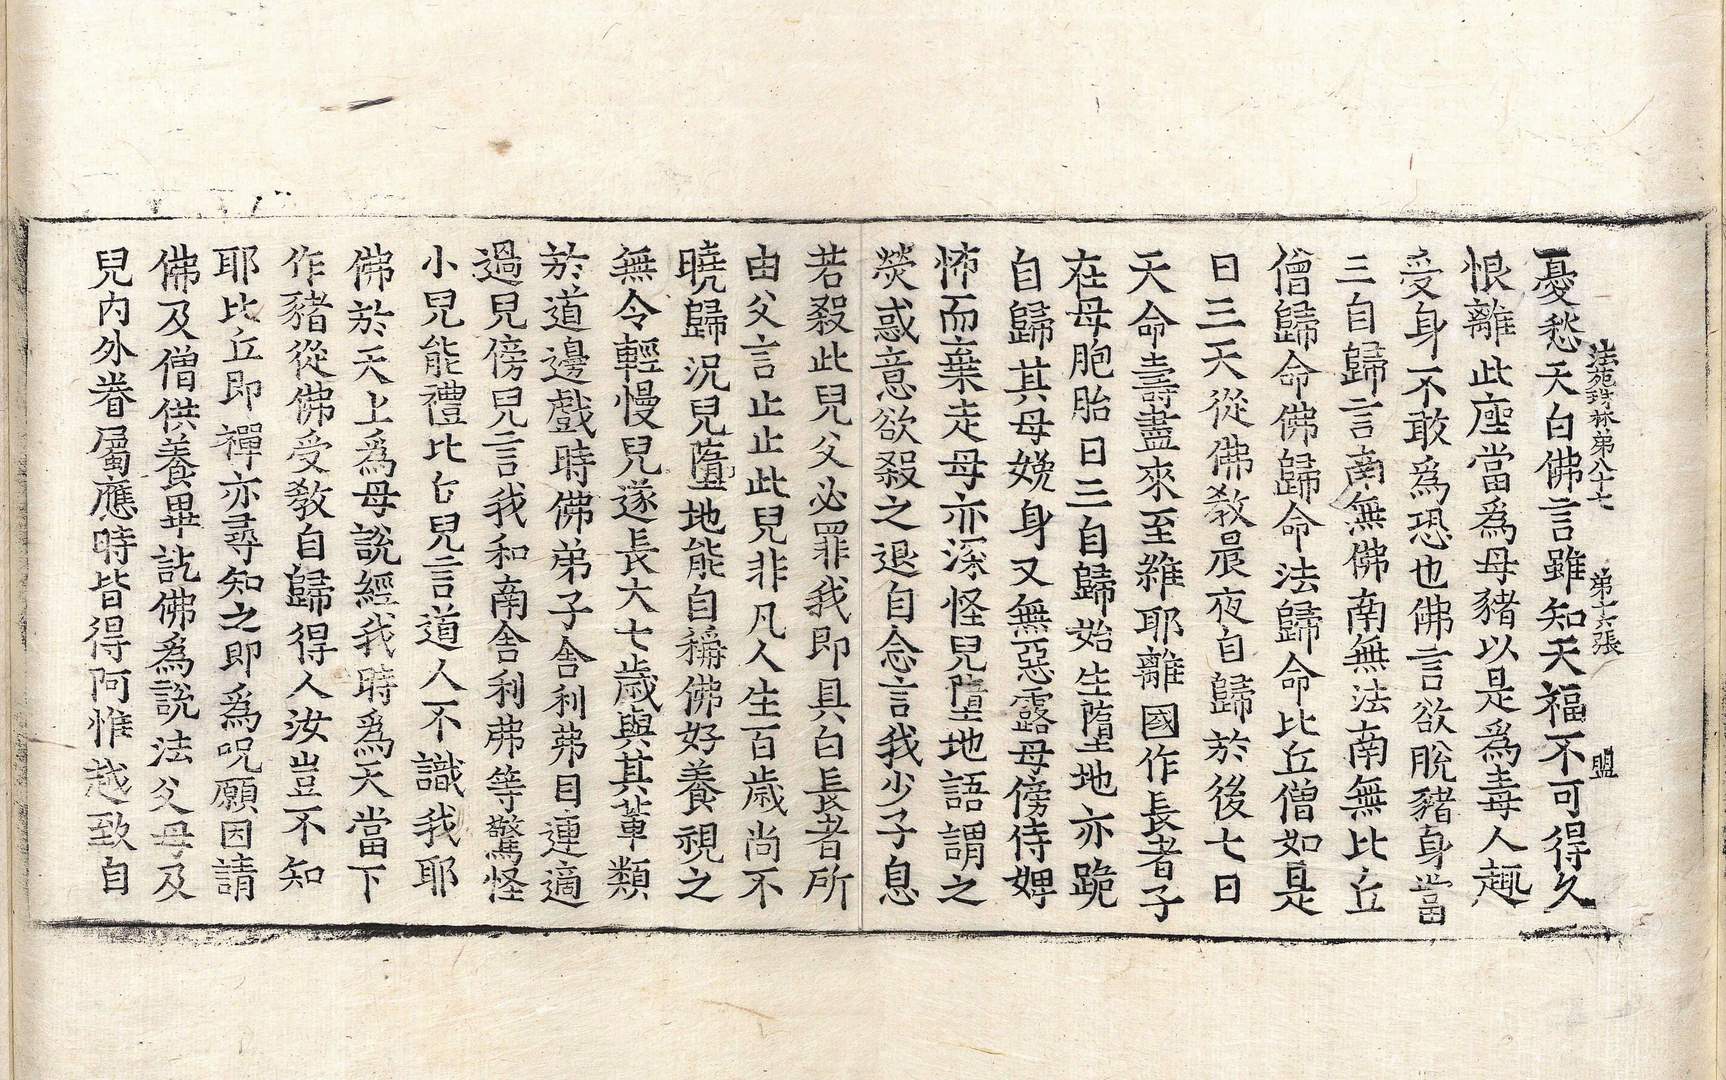 法苑珠林第八十七　第十六張　盟
憂愁天白佛言雖知天福不可得久
恨離此座當爲母豬以是爲毒人趣
受身不敢爲恐也佛言欲脫豬身當
三自歸言南無佛南無法南無比丘
僧歸命佛歸命法歸命比丘僧如是
日三天從佛敎晨夜自歸於後七日
天命壽盡來至維耶離國作長者子
在母胞胎日三自歸始生墮地亦跪
自歸其母娩身又無惡露母傍侍婢
怖而棄走母亦深怪兒墮地語謂之
熒惑意欲殺之退自念言我少子息
若殺此兒父必罪我即具白長者所
由父言止止此兒非凡人生百歲尚不
曉歸況兒墮地能自稱佛好養視之
無令輕慢兒遂長大七歲與其軰類
於道邊戲時佛弟子舍利弗目連適
過兒傍兒言我和南舍利弗等驚怪
小兒能禮比丘兒言道人不識我耶
佛於天上爲母說經我時爲天當下
作豬從佛受敎自歸得人汝豈不知
耶比丘即禪亦尋知之即爲呪願因請
佛及僧供養畢訖佛爲說法父母及
兒內外眷屬應時皆得阿惟越致自